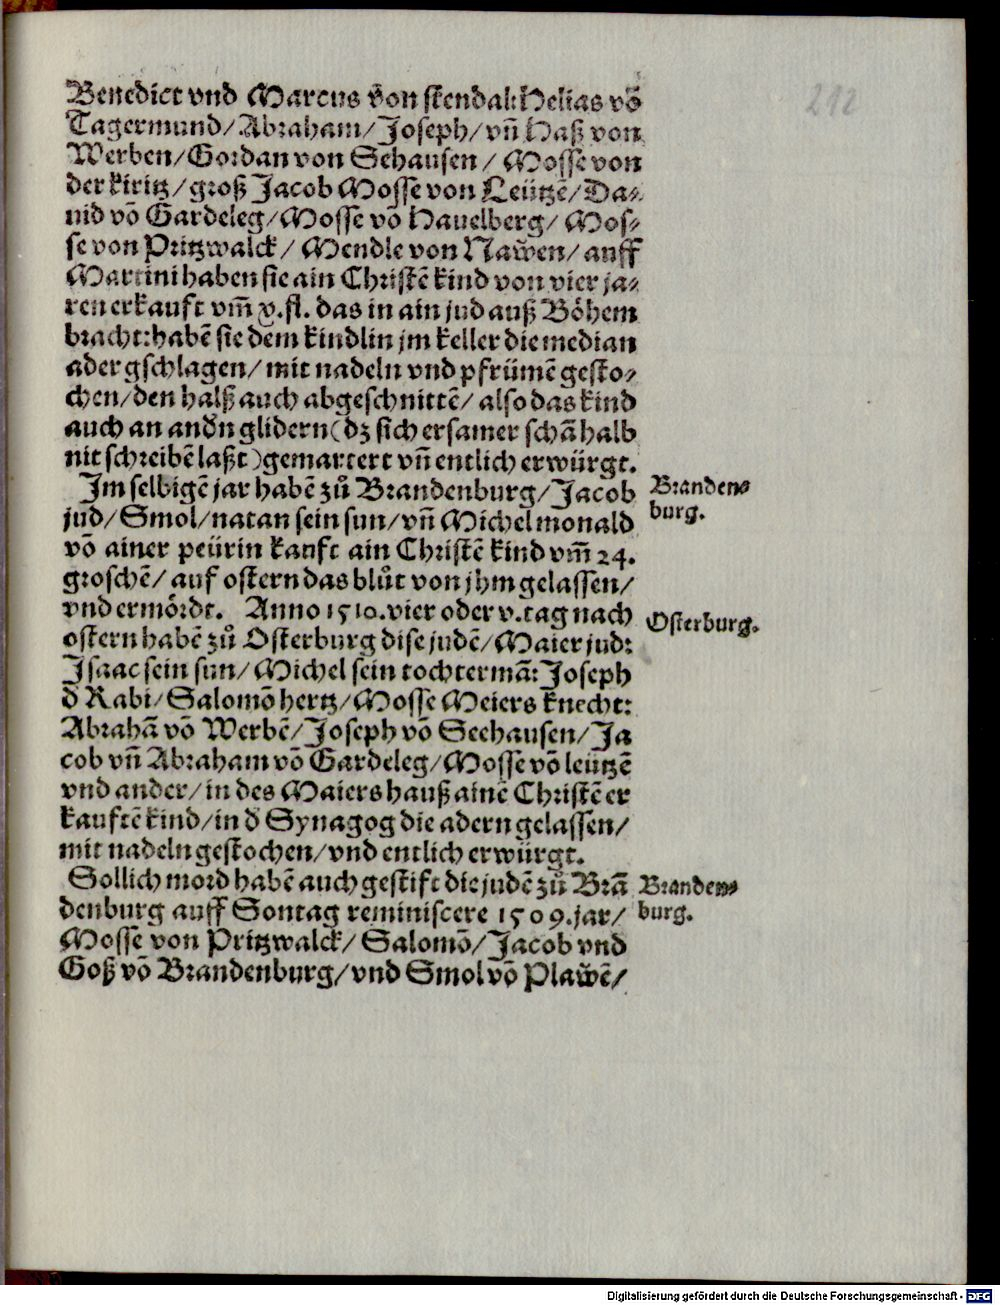 212
Benedict vnd Marcus võn stendal: Helias võ
Tagermund/Abraham/Joseph/vñ Haß von
Werben/Gordan von Sehausen/ Mosse von
der kiritz/groß Jacob Mosse von Leützẽ/Da⸗
nid võ Gardeleg/Mosse võ Hauelberg/ Mos⸗
se von Pritzwalck/ Mendle von Naẘen/ auff
Martini haben sie ain Christẽ kind von vier ja⸗
ren erkauft vm̃ x.fl. das in ain jud auß Böhem
bracht:habẽ sie dem kindlin jm keller die median
ader gschlagen/ mit nadeln vnd pfrümẽ gesto⸗
chen/den halß auch abgeschnittẽ/ also das kind
auch an andn̄ glidern(dz sich ersamer schã halb
nit schreibẽ laßt)gemartert vñ entlich erwürgt.
Jm selbigẽ jar habẽ zů Brandenburg/Jacob
jud/Smol/natan sein sun/vñ Michel monald
võ ainer peürin kauft ain Christẽ kind vm̃ 24.
groschẽ/ auf ostern das blůt von jhm gelassen/
vnd ermördt. Anno 1510.vier oder v.tag nach
ostern habẽ zů Osterburg dise judẽ/Maier jud:
Jsaac sein sun/Michel sein tochtermã: Joseph
đ Rabi/Salomõ hertz/Mosse Meiers knecht:
Abrahã võ Werbẽ/Joseph võ Seehausen/Ja
cob vñ Abraham võ Gardeleg/Mosse võ leützẽ
vnd ander/in des Maiers hauß ainẽ Christẽ er
kauftẽ kind/in đ Synagog die adern gelassen/
mit nadeln gestochen/vnd entlich erwürgt.
Sollich mord habẽ auch gestift die judẽ zů Brã
denburg auff Sontag reminiscere 1509.jar/
Mosse von Pritzwalck/ Salomõ/Jacob vnd
Goß võ Brandenburg/vnd Smol võ Plaẘẽ/
Branden⸗
burg.
Osterburg.
Branden⸗
burg.
Digitalisierung gefördert durch die Deutsche Forschungsgemeinschaft - DFG